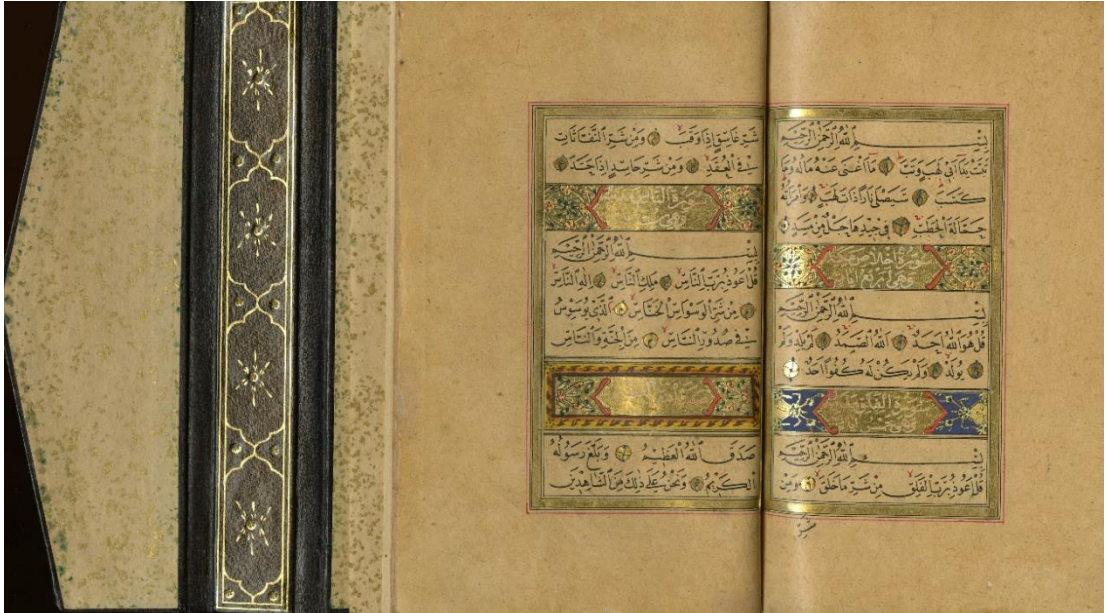 بِسْمِ اللّٰهِ الرَّحْمٰنِ الرَّحِيمِ
تَبَّتْ يَدَا اَبِي لَهَبٍ وَتَبَّ مَا اَغْنٰى عَنْهُ مَالُهُ وَمَا
كَسَبَ سَيَصْلٰى نَارًا ذَاتَ لَهَبٍ وَامْرَاَتُهُ
حَمَّالَةَ الْحَطَبِ فِي جِيدِهَا حَبْلٌ مِنْ مَسَدٍ
سورة اخلاص
وهي اربع ايات
بِسْمِ اللّٰهِ الرَّحْمٰنِ الرَّحِيمِ
قُلْ هُوَ اللّٰهُ اَحَدٌ اَللّٰهُ الصَّمَدُ لَمْ يَلِدْ وَلَمْ
يُولَدْ وَلَمْ يَكُنْ لَهُ كُفُوًا اَحَدٌ
سورة الفلق
بِسْمِ اللّٰهِ الرَّحْمٰنِ الرَّحِيمِ
قُلْ اَعُوذُ بِرَبِّ الْفَلَقِ مِنْ شَرِّ مَا خَلَقَ وَمِنْ
شَرِّ
شَرِّ غَاسِقٍ اِذَا وَقَبَ وَمِنْ شَرِّ النَّفَّاثَاتِ
فِي الْعُقَدِ وَمِنْ شَرِّ حَاسِدٍ اِذَا حَسَدَ
سورة الناس
وهي
بِسْمِ اللّٰهِ الرَّحْمٰنِ الرَّحِيمِ
قُلْ اَعُوذُ بِرَبِّ النَّاسِ مَلِكِ النَّاسِ اِلٰهِ النَّاسِ
مِنْ شَرِّ الْوَسْوَاسِ الْخَنَّاسِ اَلَّذِي يُوَسْوِسُ
فِي صُدُورِ النَّاسِ مِنَ الْجِنَّةِ وَالنَّاسِ
صَدَقَ اللّٰهُ الْعَظِيمُ وَبَلَّغَ رَسُولُهُ
الْكَرِيمُ وَنَحْنُ عَلٰى ذٰلِكَ مِنَ الشَّاهِدِينَ